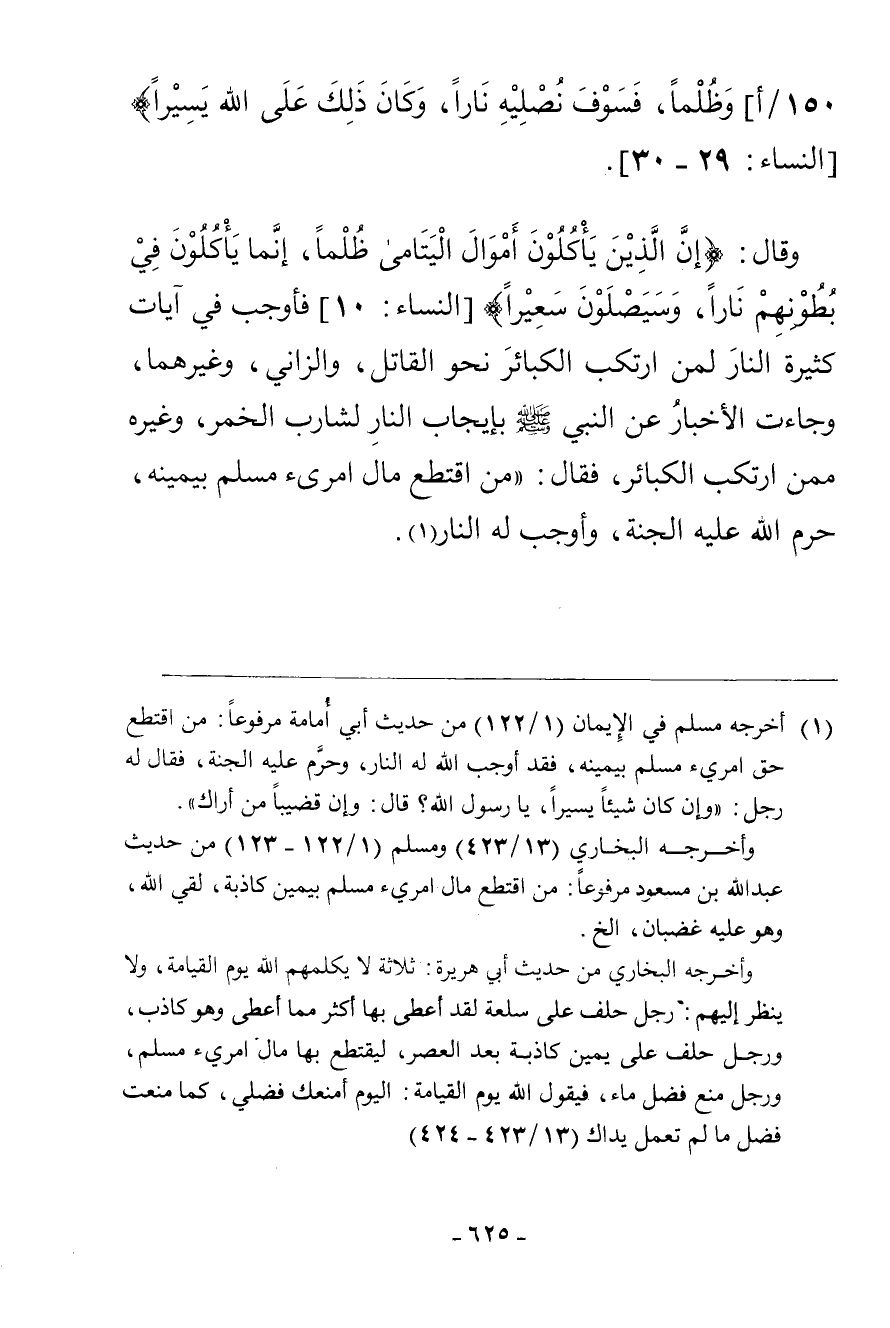 ١٥٠/أ] وَظُلْماً، فَسَوْفَ نُصْلِيْهِ نَاراً، وَكَانَ ذَلِكَ عَلَى الله يَسِيْراً﴾
[النساء: ٢٩ ـ ٣٠].
وقال: ﴿إنَّ الَّذِيْنَ يَأْكُلُوْنَ أَمْوَالَ الْيَتَامىٰ ظُلْماً، إنَّما يَأْكُلُوْنَ فِيْ
بُطُوْنِهِمْ نَاراً، وَسَيَصْلَوْنَ سَعِيْراً﴾ [النساء: ١٠] فأوجب في آيات
كثيرة النارَ لمن ارتكب الكبائرَ نحو القاتل، والزاني، وغيرهما،
وجاءت الأخبارُ عن النبي ﷺ بإيجاب النارِ لشارب الخمر، وغيره
ممن ارتكب الكبائر، فقال: «من اقتطع مال امرىء مسلم بيمينه،
حرم الله عليه الجنة، وأوجب له النار(١).
(١) أخرجه مسلم في الإيمان (١/ ١٢٢) من حديث أبي أُمامة مرفوعاً: من اقتطع
حق امريء مسلم بيمينه، فقد أوجب الله له النار، وحرَّم عليه الجنة، فقال له
رجل: «وإن كان شيئاً يسيراً، يا رسول الله؟ قال: وإن قضيباً من أراك».
وأخرجه البخاري (١٣/ ٤٢٣) ومسلم (١/ ١٢٢ ـ ١٢٣) من حديث
عبدالله بن مسعود مرفوعاً: من اقتطع مال امريء مسلم بيمين كاذبة، لقي الله،
وهو عليه غضبان، الخ.
وأخرجه البخاري من حديث أبي هريرة: ثلاثة لا يكلمهم الله يوم القيامة، ولا
ينظر إليهم: رجل حلف على سلعة لقد أعطى بها أكثر مما أعطى وهو كاذب،
ورجل حلف على يمين كاذبة بعد العصر، ليقتطع بها مال امريء مسلم،
ورجل منع فضل ماء، فيقول الله يوم القيامة: اليوم أمنعك فضلي، كما منعت
فضل ما لم تعمل يداك (١٣/ ٤٢٣ ـ ٤٢٤)
ـ ٦٢٥ ـ